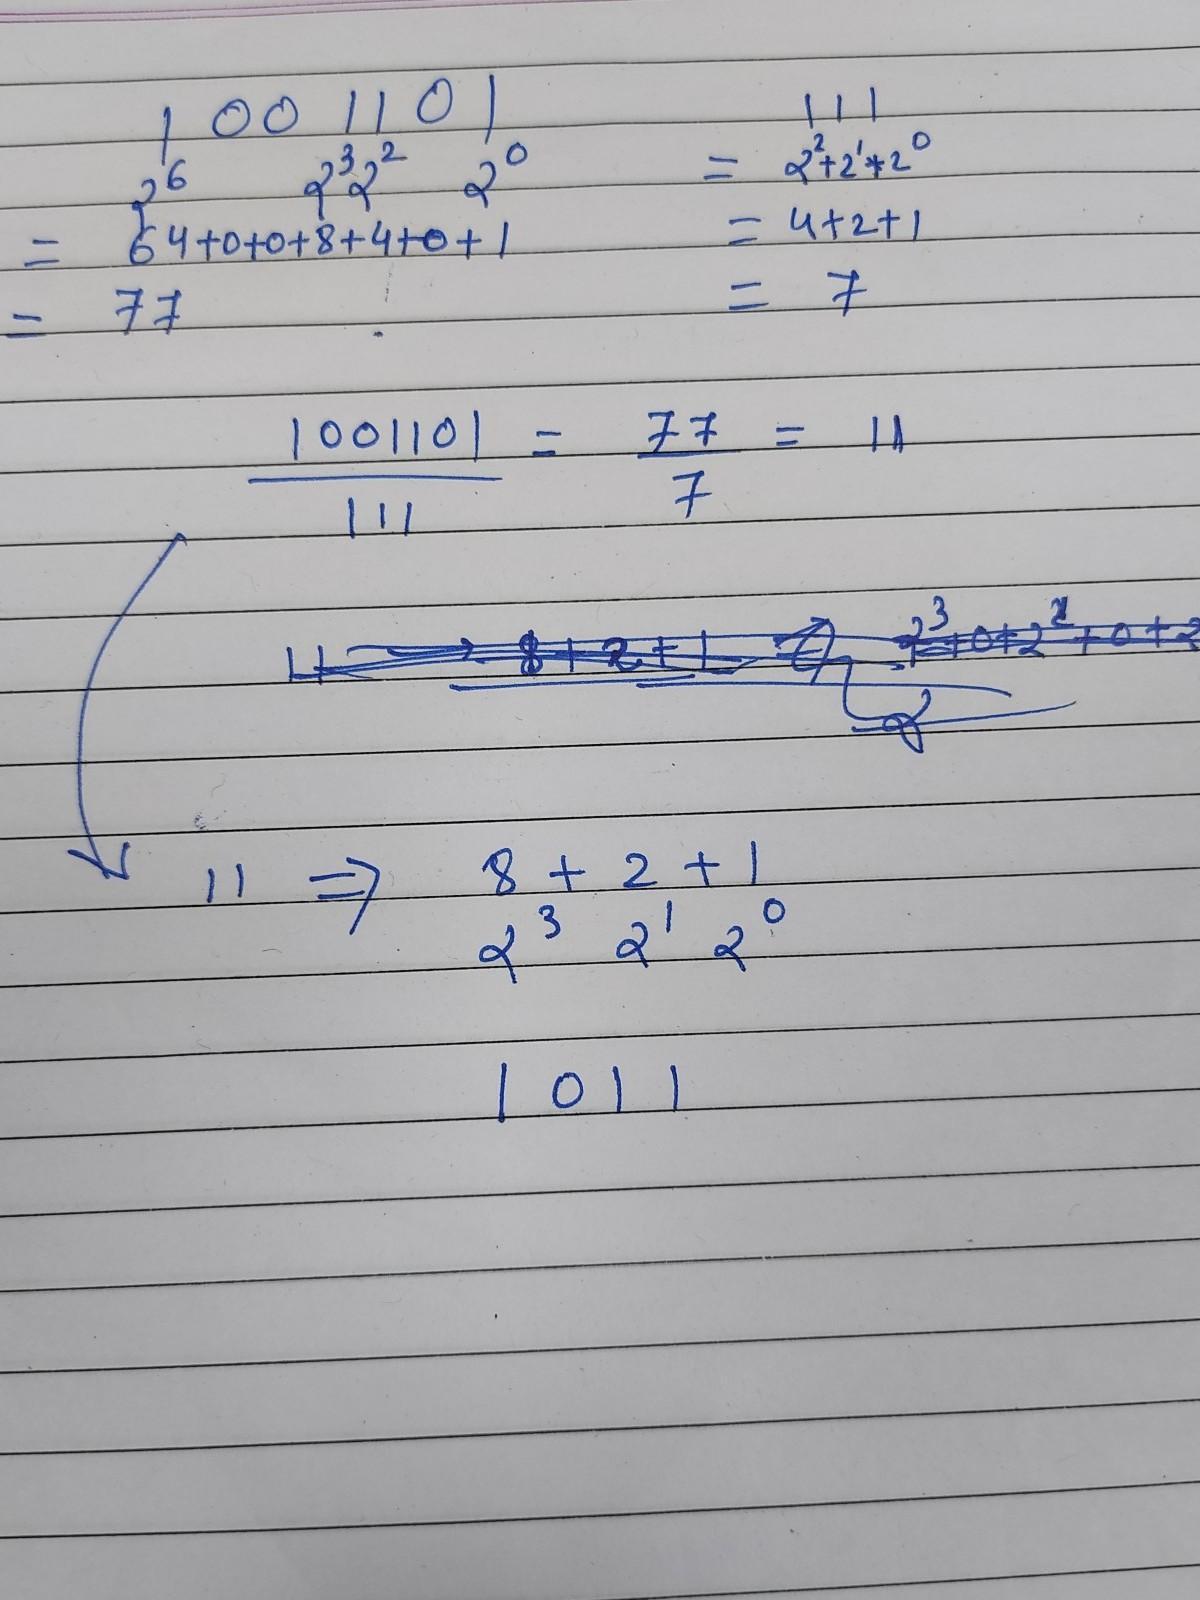 1001101
2⁶ 2³ 2² 2⁰
= 64+0+0+8+4+0+1
= 77
111
= 2²+2¹+2⁰
= 4+2+1
= 7
1001101 = 77 = 11
111 7
8+2+1 2³+0+2 +0+2
2
11 ⇒ 8 + 2 + 1
2³ 2¹ 2⁰
1011